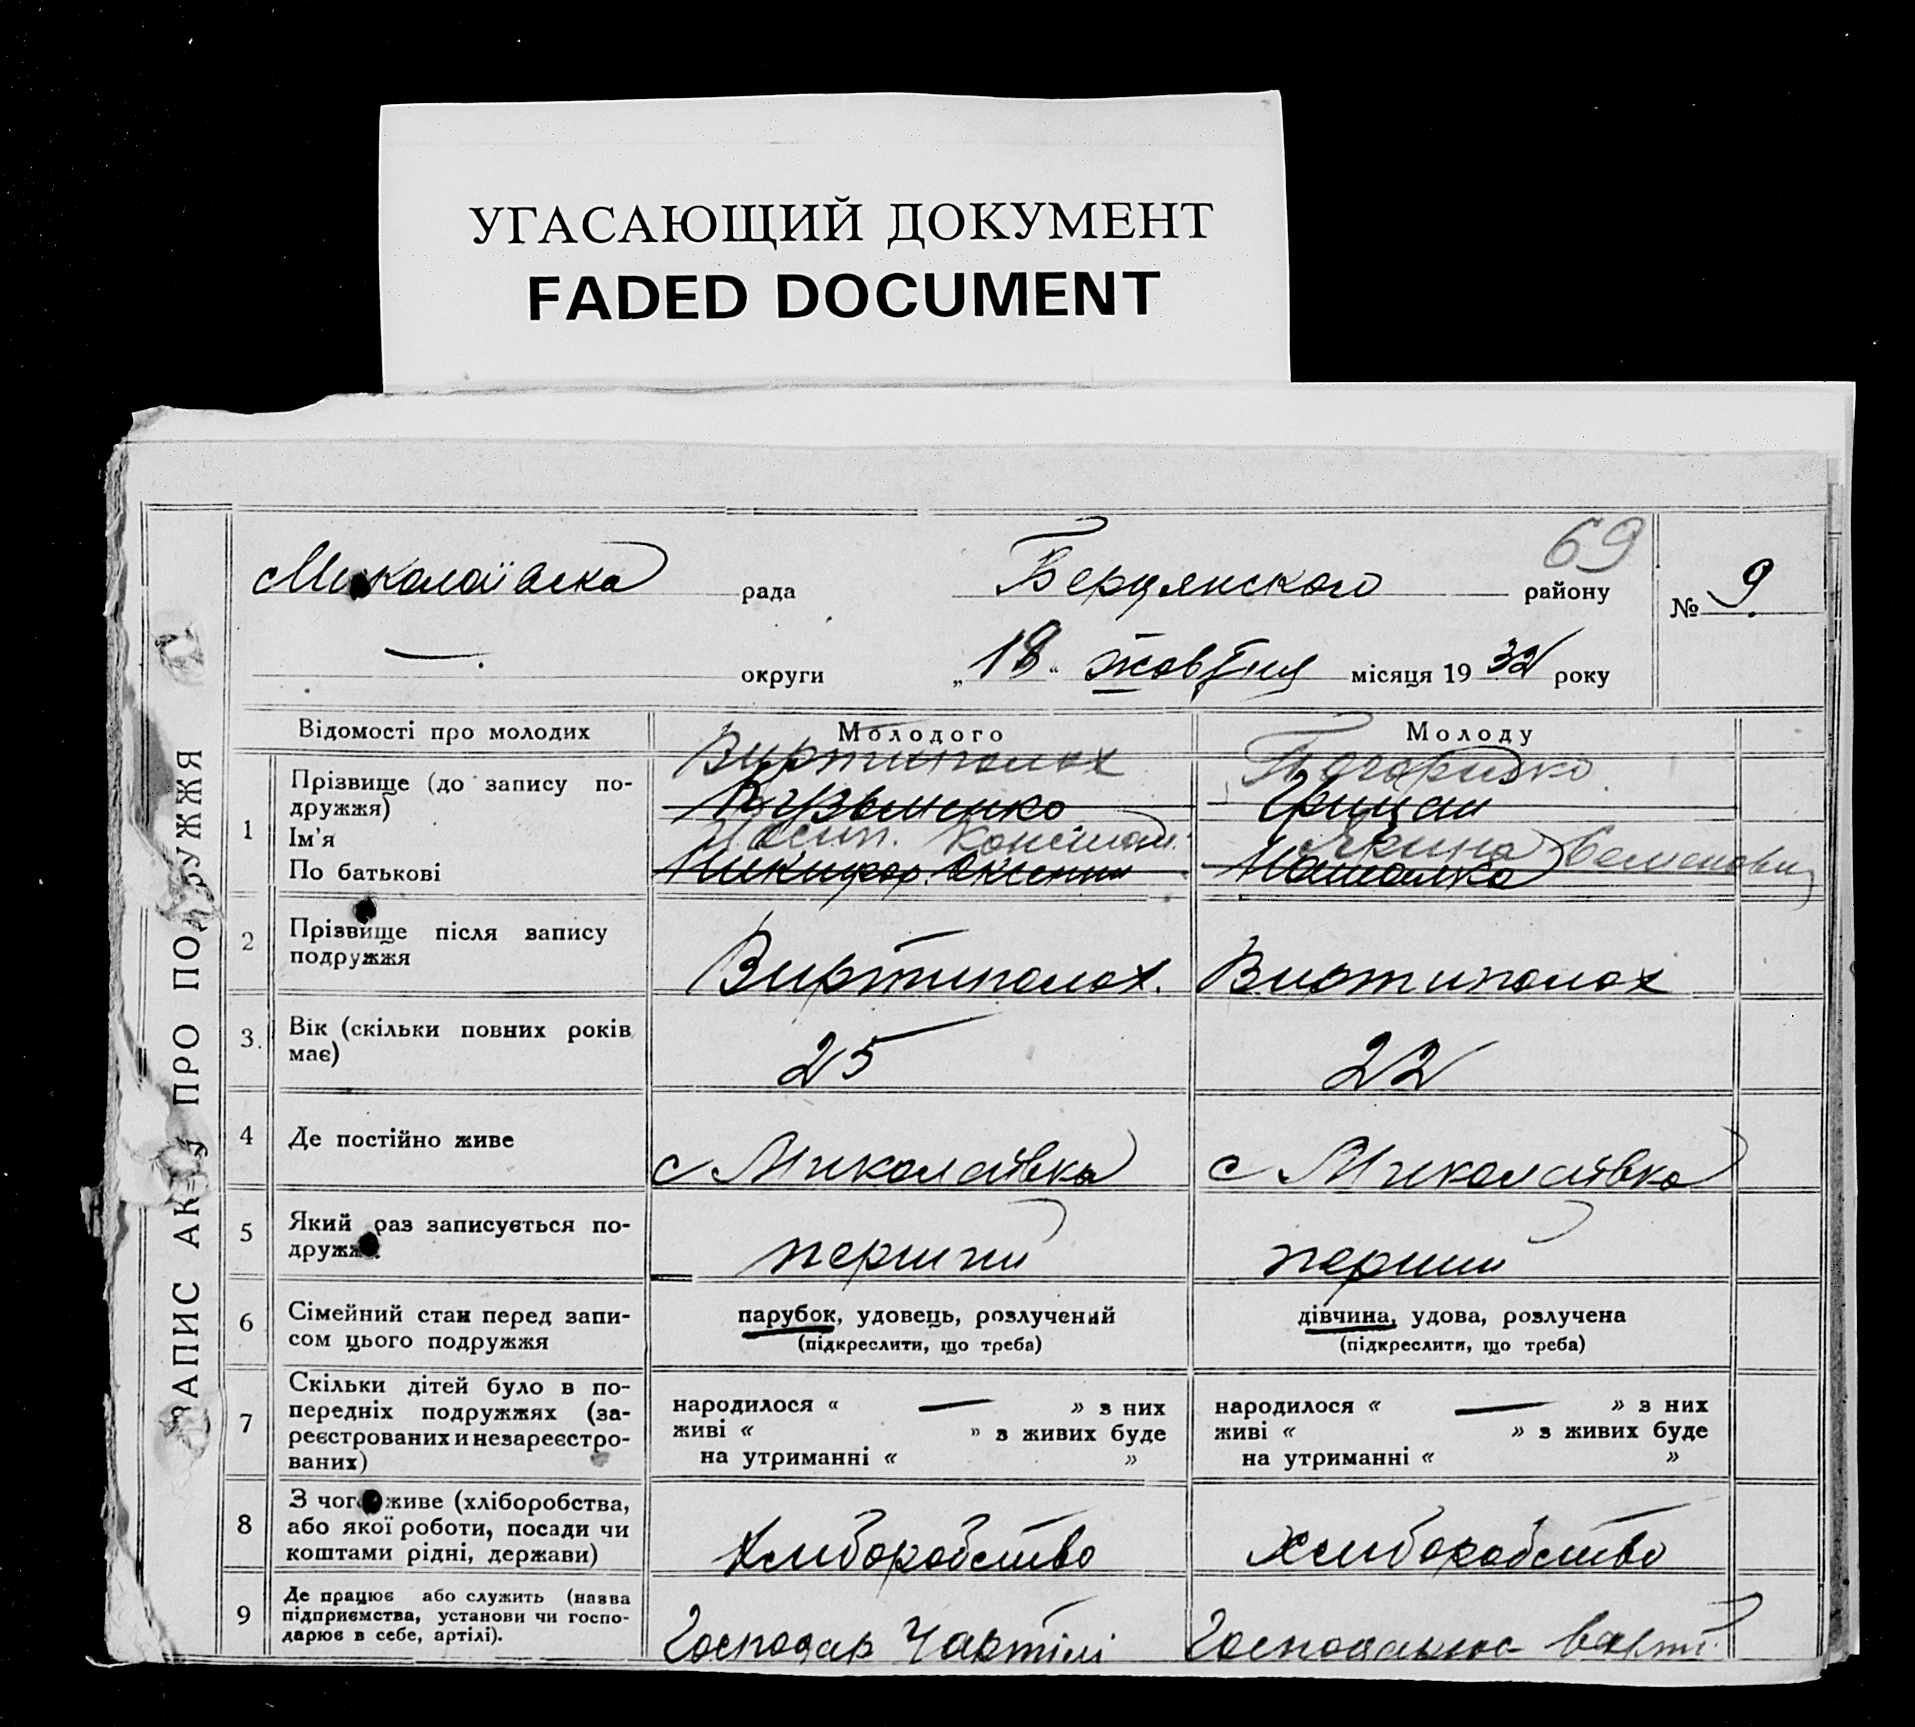 УГАСАЮЩИЙ ДОКУМЕНТ
FADED DOCUMENT
ЗАПИС АКТУ ПРО ПОДРУЖЖЯ
69
Миколаївська рада Бердянского району № 9
— округи „18“ жовтня місяця 1932 року
Відомості про молодих Молодого Молоду
1 Прізвище (до запису по-
дружжя)
Ім'я
По батькові
Виртиполох
Кузьменко Грицай
Осип. Конст Ярина Семеновн
Никифор Наталка
2 Прізвище після запису
подружжя
Виртиполох. Виртиполох
3. Вік (скільки повних років
має)
25 22
4 Де постійно живе с Миколаївка с Миколаївка
5 Який раз записується по-
дружжя
перший перший
6 Сімейний стан перед запи-
сом цього подружжя
парубок, удовець, розлучений дівчина, удова, розлучена
(підкреслити, що треба) (підкреслити, що треба)
7 Скільки дітей було в по-
передніх подружжях (за-
реєстрованих и незареєстро-
ваних)
народилося « — » з них народилося « — » з них
живі « » з живих буде живі « » з живих буде
на утриманні « » на утриманні « »
8 З чого живе (хліборобства,
або якої роботи, посади чи
коштами рідні, держави)
Хліборобство хліборобство
9 Де працює або служить (назва
підприємства, установи чи госпо-
дарює в себе, артілі).
Господар Чартілі